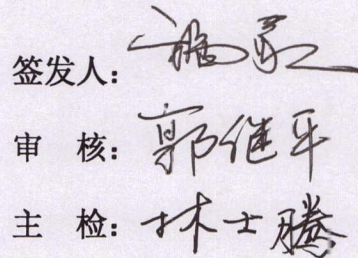 签发人：
审 核：郭继平
主 检：林士腾